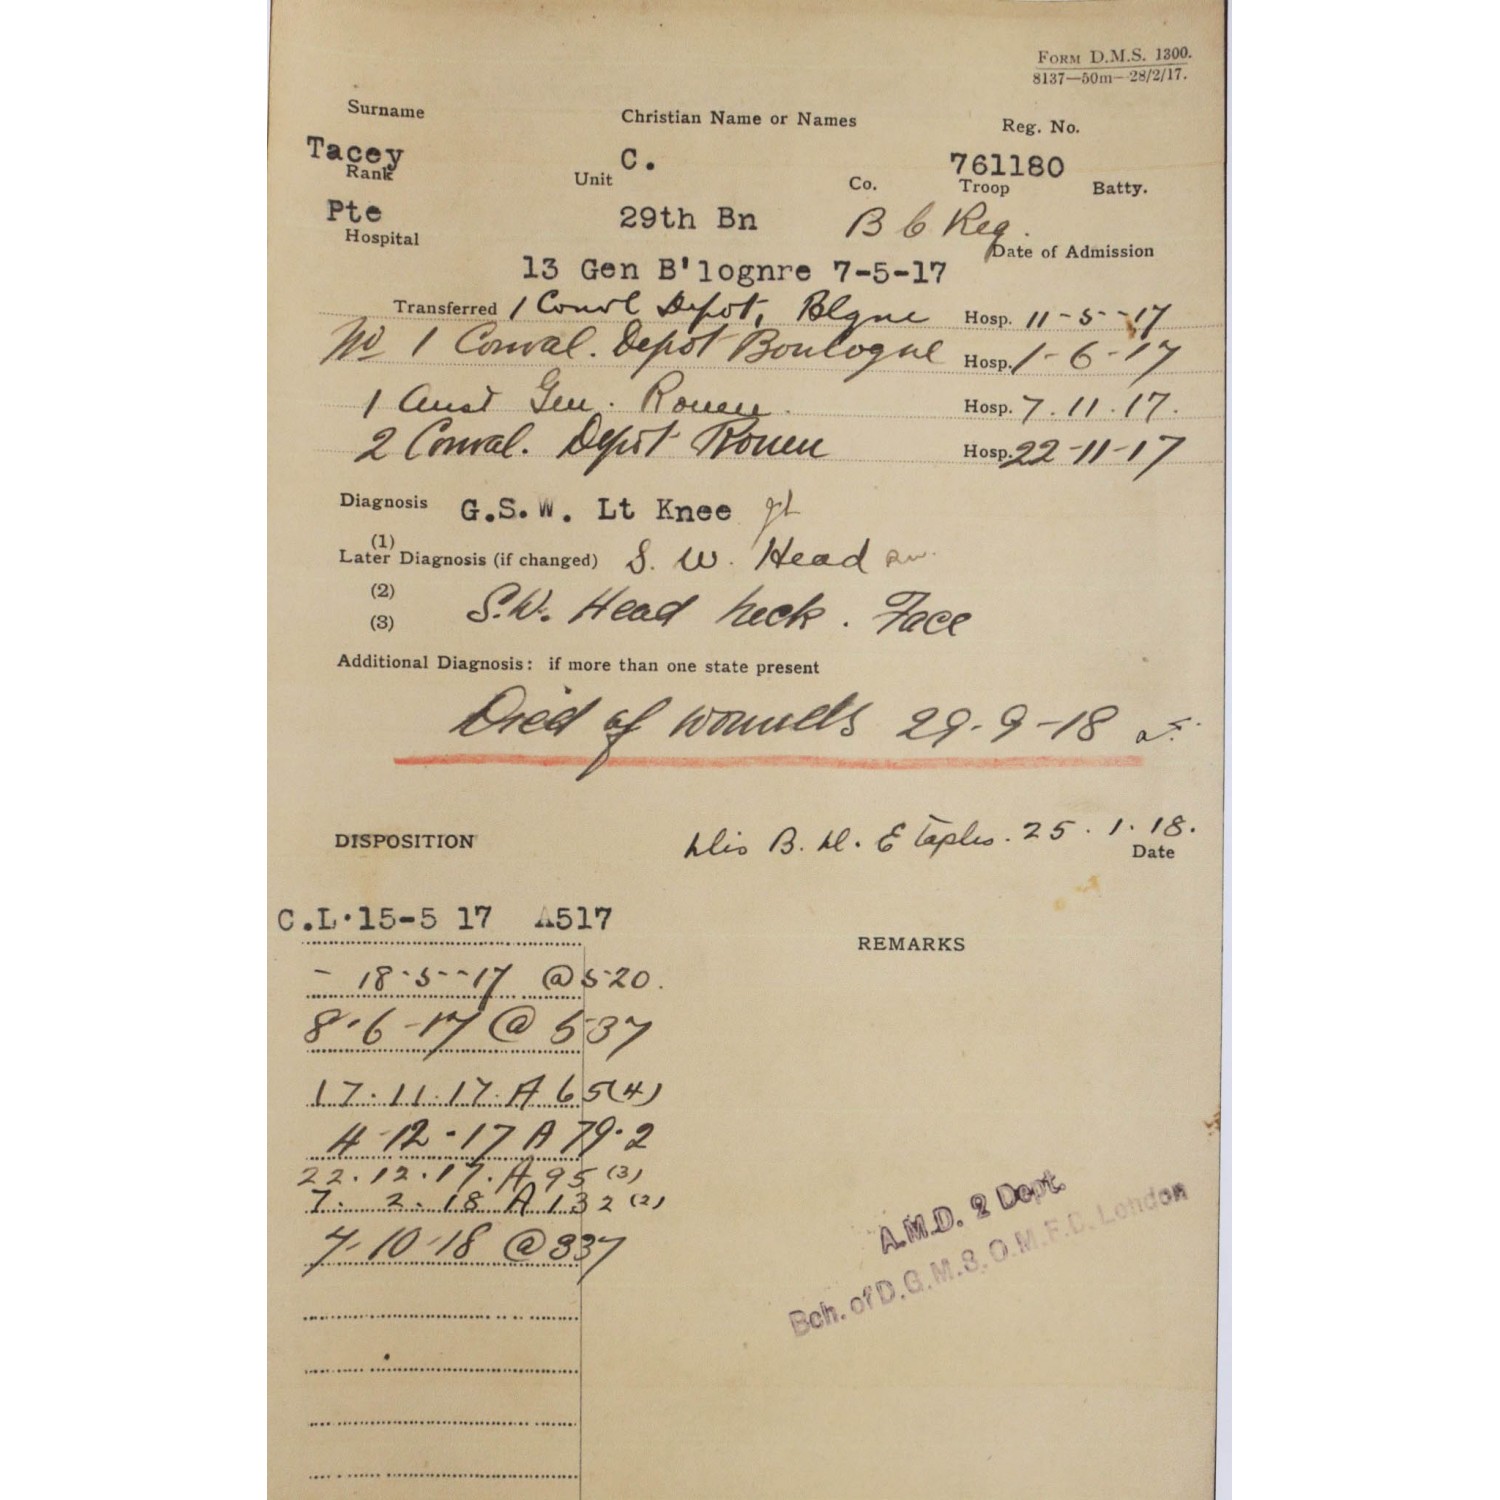 FORM D.M.S. 1300.
8137—50m—28/2/17.
Surname Christian Name or Names Reg. No.
Tacey C. 761180
Rank Unit Co. Troop Batty.
Pte 29th Bn B C Reg.
Hospital Date of Admission
13 Gen B'lognre 7-5-17
Transferred 1 Convl Depot, Blgne Hosp. 11-5-17
No 1 Conval. Depot Boulogne Hosp. 1-6-17
1 Aust Gen. Rouen. Hosp. 7.11.17.
2 Conval. Depot Rouen Hosp. 22-11-17
Diagnosis G.S.W. Lt Knee
(1)
Later Diagnosis (if changed) S. W. Head
(2)
S.W. Head neck. Face
(3)
Additional Diagnosis: if more than one state present
Died of wounds 29-9-18
DISPOSITION Dis B. D. Etaples. 25.1.18.
Date
C.L.15-5 17 A517
REMARKS
- 18-5-17 @520.
8-6-17 @ 537
17.11.17. A 65(4)
4-12-17 A 79.2
22.12.17. A 95 (3)
7. 2. 18 A 132 (2)
7-10-18 @337
A.M.D. 2 Dept.
Bch. of D.G.M.S. O.M.F.C. London